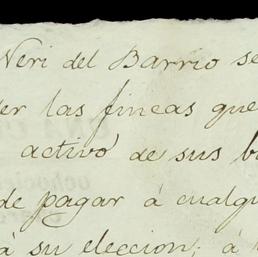 Neri del Barrio se
er las fincas que
activo de sus b
de pagar á cualqu
á su eleccion; á